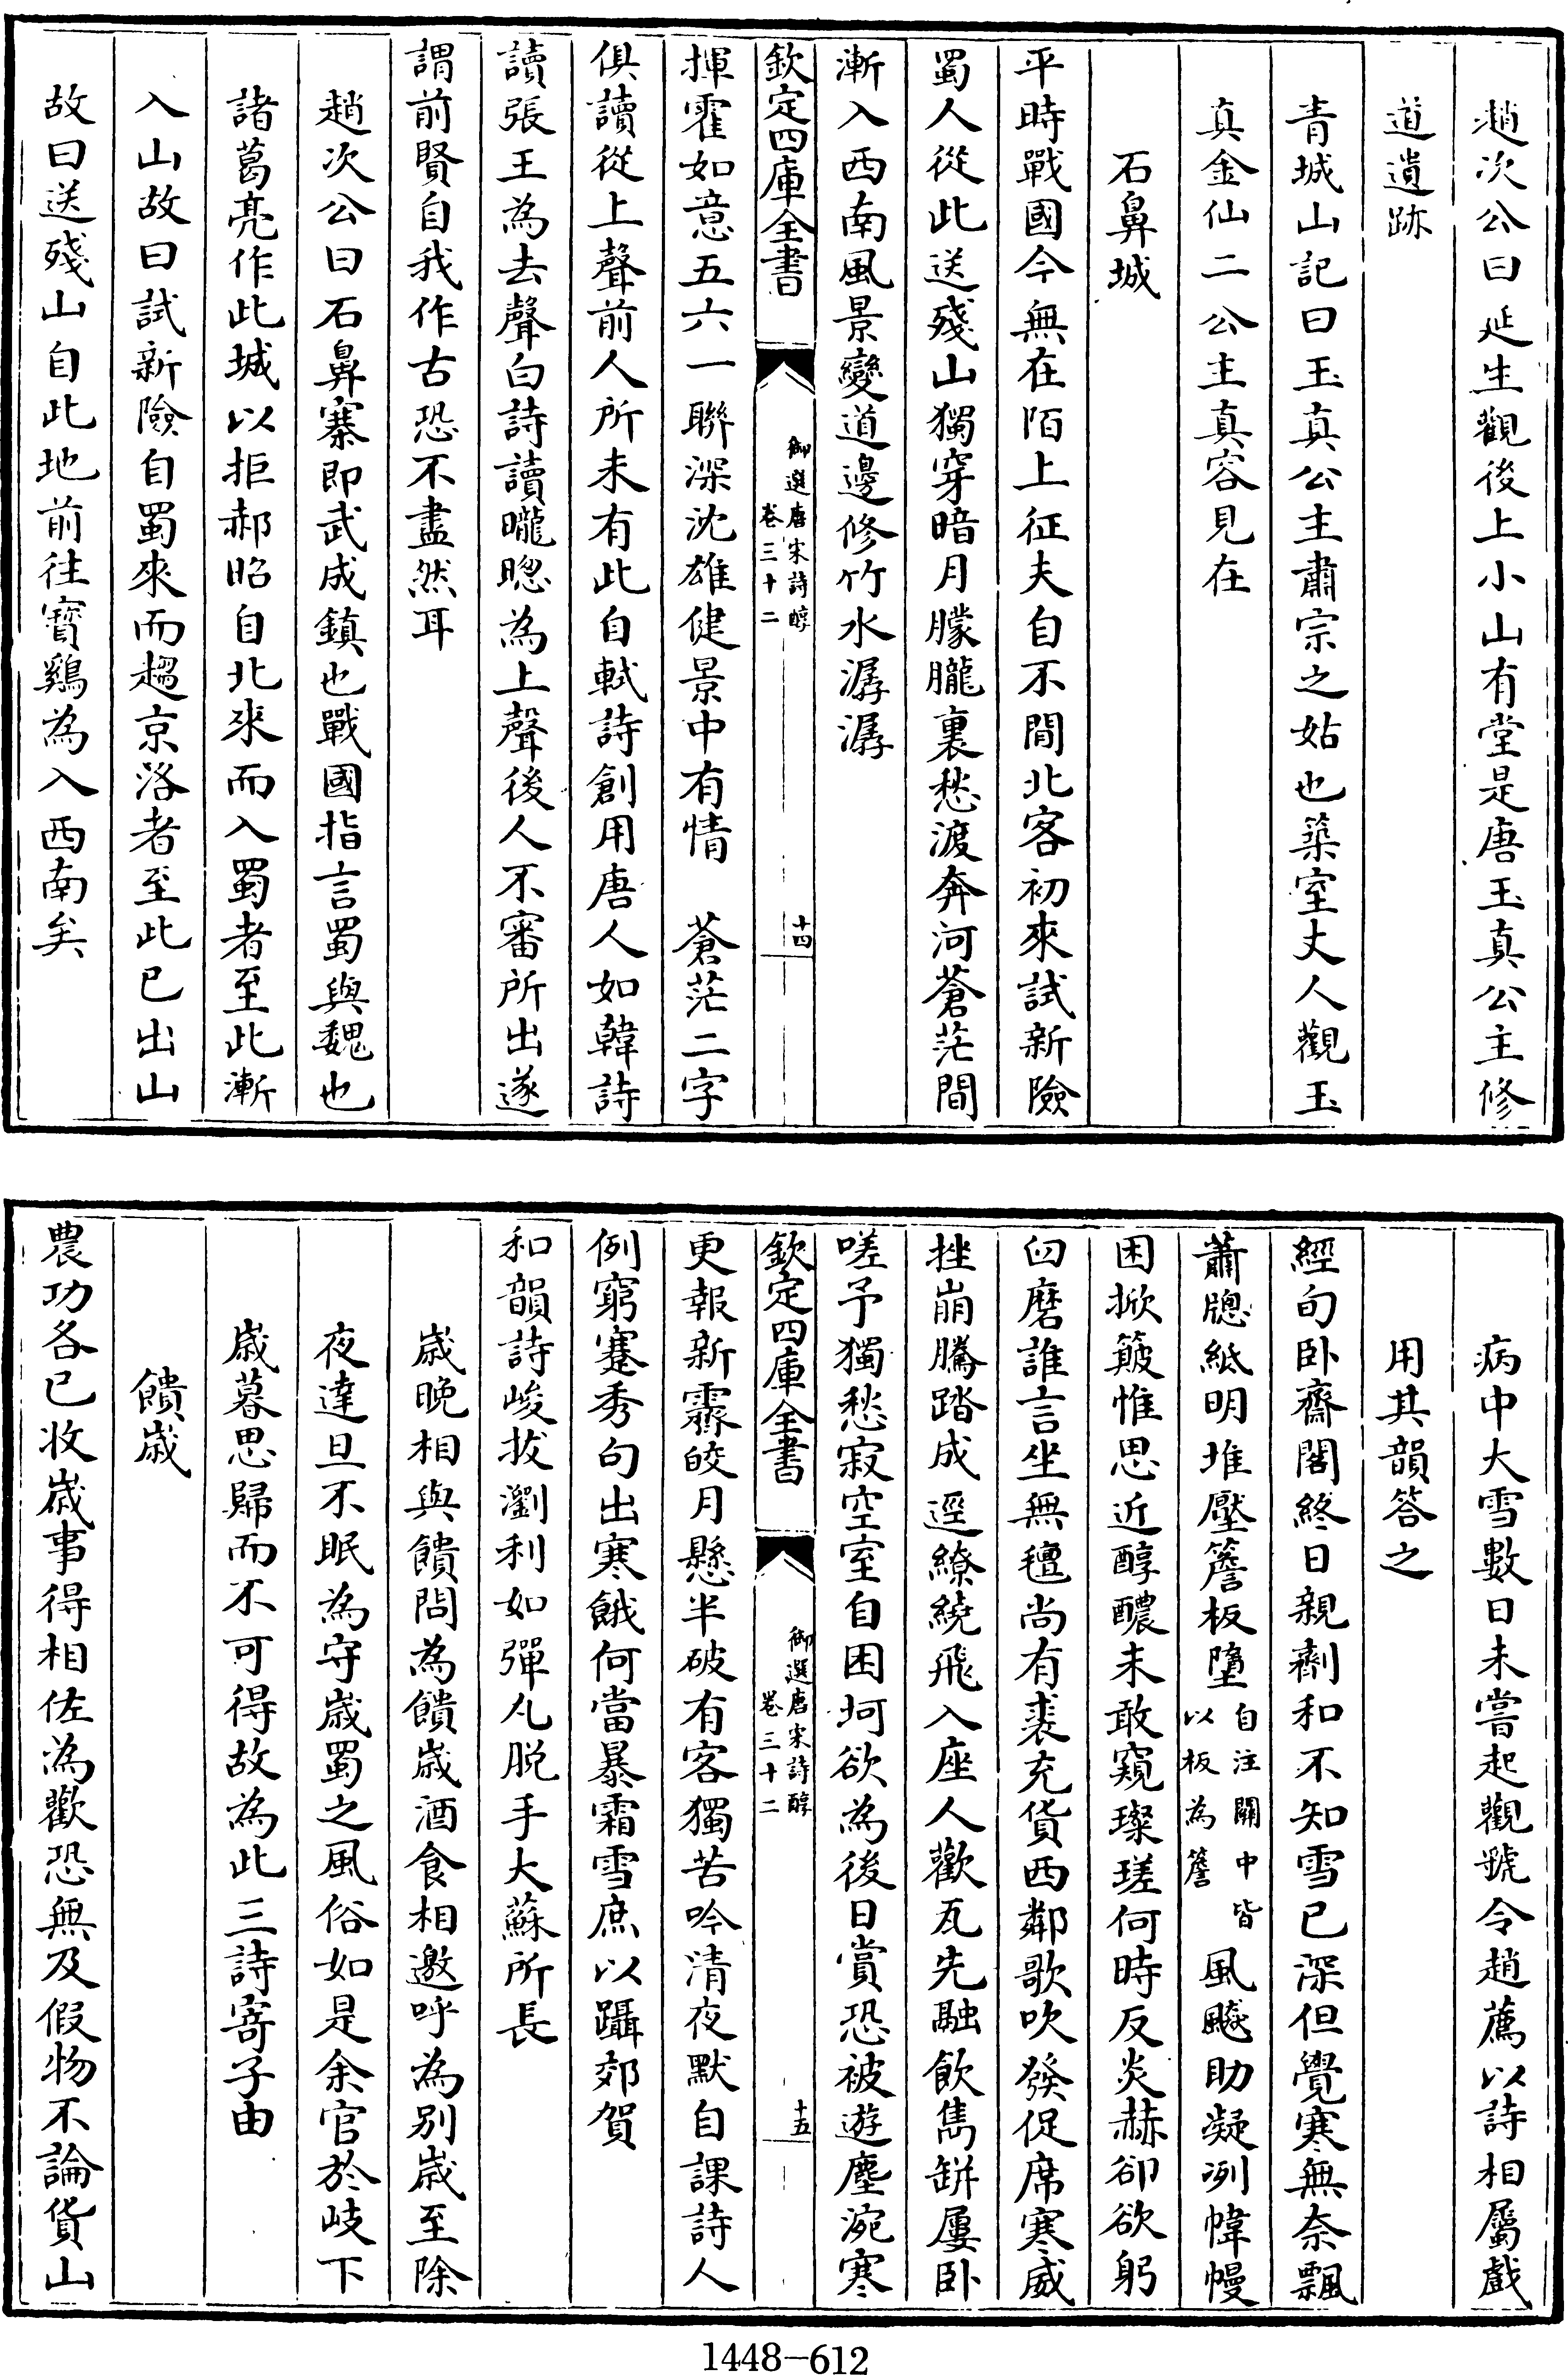 趙次公曰延生觀後上小山有堂是唐玉真公主修
道遺跡
青城山記曰玉真公主肅宗之姑也築室丈人觀玉
真金仙二公主真容見在
石鼻城
平時戰國今無在陌上征夫自不閒北客初來試新險
蜀人從此送殘山獨穿暗月朦朧裏愁渡奔河蒼茫間
漸入西南風景變道邊修竹水潺潺
欽定四庫全書
御選唐宋詩醇
卷三十二
十四
揮霍如意五六一聯深沈雄健景中有情 蒼茫二字
俱讀從上聲前人所未有此自軾詩創用唐人如韓詩
讀張王為去聲白詩讀曨聰為上聲後人不審所出遂
謂前賢自我作古恐不盡然耳
趙次公曰石鼻寨即武成鎮也戰國指言蜀與魏也
諸葛亮作此城以拒郝昭自北來而入蜀者至此漸
入山故曰試新險自蜀來而趨京洛者至此已出山
故曰送殘山自此地前往寶鷄為入西南矣
病中大雪數日未嘗起觀虢令趙薦以詩相屬戲
用其韻答之
經旬卧齋閣終日親劑和不知雪已深但覺寒無奈飄
蕭牕紙明堆壓簷板墮
自注關中皆
以板為簷
風飈助凝冽幃幔
困掀簸惟思近醇醲未敢窺璨瑳何時反炎赫卻欲躬
臼磨誰言坐無氊尚有裘充貨西鄰歌吹發促席寒威
挫崩騰踏成逕繚繞飛入座人歡瓦先融飲雋缾屢卧
嗟予獨愁寂空室自困坷欲為後日賞恐被遊塵涴寒
欽定四庫全書
御選唐宋詩醇
卷三十二
十五
更報新霽皎月懸半破有客獨苦吟清夜默自課詩人
例窮蹇秀句出寒餓何當暴霜雪庶以躡郊賀
和韻詩峻拔瀏利如彈丸脱手大蘇所長
嵗晚相與饋問為饋嵗酒食相邀呼為别嵗至除
夜達旦不眠為守嵗蜀之風俗如是余官於岐下
嵗暮思歸而不可得故為此三詩寄子由
饋嵗
農功各已收嵗事得相佐為歡恐無及假物不論貨山
1448-612